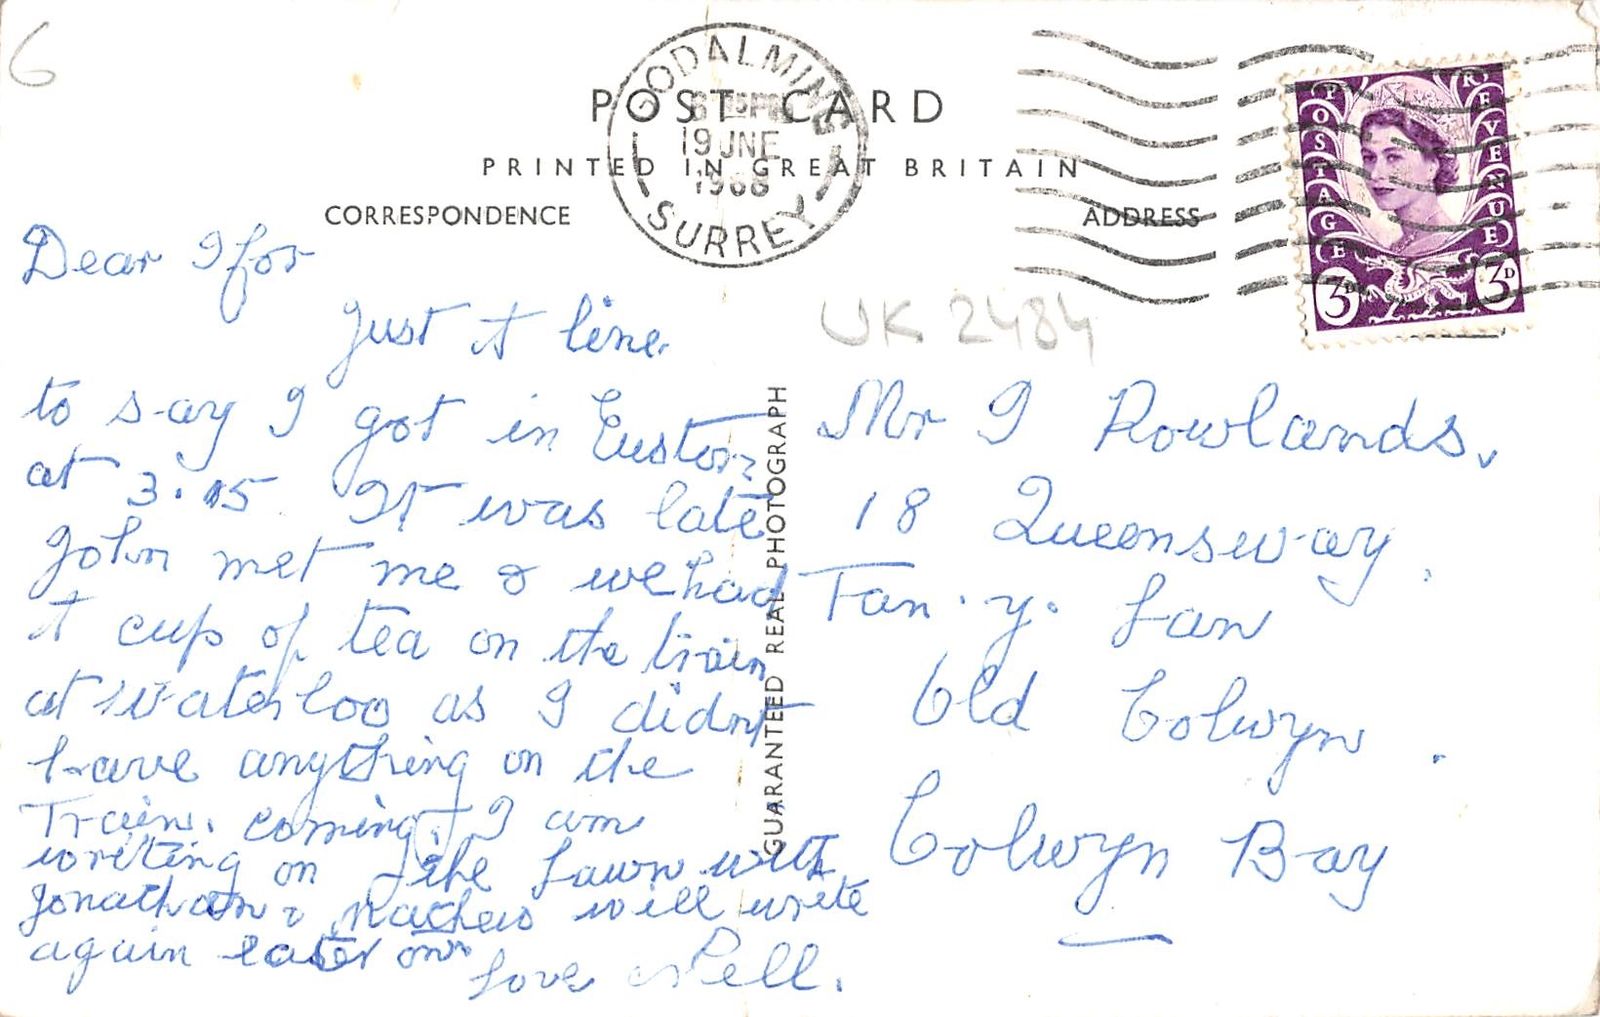 6
POST CARD
PRINTED IN GREAT BRITAIN
CORRESPONDENCE
ADDRESS
GODALMING
19 JNE
1968
SURREY
POSTAGE
REVENUE
3D
3D
UK 2484
Dear Ifor
Just A line
to say I got in Euston
at 3.15 It was late
John met me & we had
A cup of tea on the train
at Waterloo as I didnt
have anything on the
Train. coming. I am
writing on the Lawn with
Jonathan & will write
again later on
Love Nell.
GUARANTEED REAL PHOTOGRAPH
Mr I Rowlands,
18 Queensway.
Tan.y. Lan
Old Colwyn.
Colwyn Bay